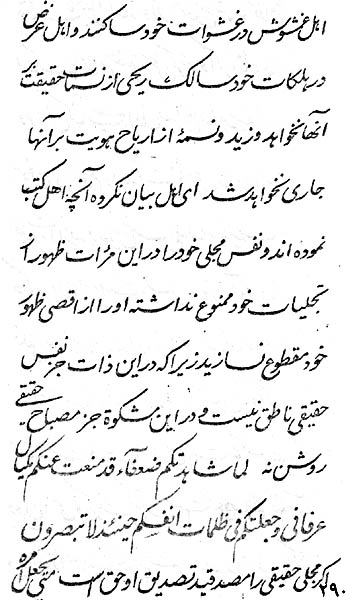 اهل غشوش در غشوات خود ساکنند و اهل غرض
در هلکات خود سالک ریحی از نسمات حقیقت بر
آنها نخواهد وزید و نسمهٔ از اریاح هویت بر آنها
جاری نخواهد شد ای اهل بیان نکرده آنچه اهل کتب
نموده اند و نفس مجلی خود را در این مرآت ظهور از
تجلیات خود ممنوع نداشته او را از اقصی ظهور
خود مقطوع نسازید زیرا که در این ذات جز نفس
حقیقی ناطق نیست و در این مشکوة جز مصباح حقیقی
روشن نه لما شاهدتکم ضعفآء قد منعت عنکم مکیال
عرفانی و جعلتکم فی ظلمات انفسکم حینئذ لا تبصرون
اگر مجلی حقیقی را مصدقید تصدیق او حق است متی یجعل امره
۲۹۰